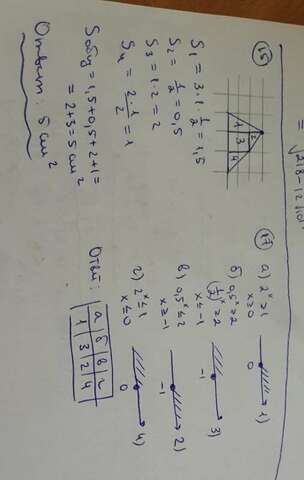 = √218-12
15
1
2
3
4
S₁ = 3·1·1/2 = 1,5
S₂ = 1/2 = 0,5
S₃ = 1·2 = 2
S₄ = 2·1/2 = 1
Sобщ = 1,5+0,5+2+1=
= 2+3=5 см²
Ответ: 5 см²
17
а) 2ˣ ≥ 1
x ≥ 0
0
1)
б) 0,5ˣ ≥ 2
(1/2)ˣ ≥ 2
x ≤ -1
-1
3)
в) 0,5ˣ ≤ 2
x ≥ -1
-1
2)
г) 2ˣ ≤ 1
x ≤ 0
0
4)
Ответ:
а б в г
1 3 2 4